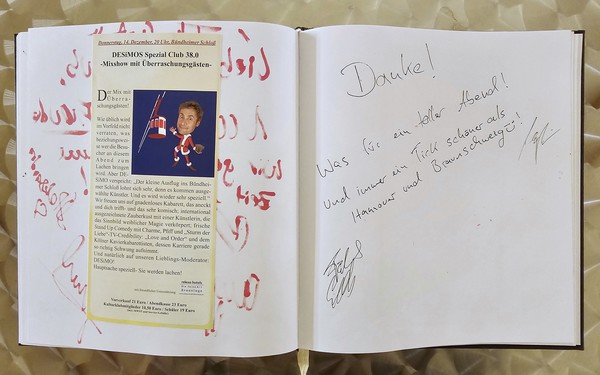 Donnerstag, 14. Dezember, 20 Uhr, Bündheimer Schloß
DESiMOS Spezial Club 38.0
-Mixshow mit Überraschungsgästen-
Der Mix mit
Überra-
schungsgästen!
Wie üblich wird
im Vorfeld nicht
verraten, was
beziehungsweis-
e wer die Besu-
cher an diesem
Abend zum
Lachen bringen
wird. Aber DE-
SiMO verspricht: „Der kleine Ausflug ins Bündhei-
mer Schloß lohnt sich sehr, denn es kommen ausge-
wählte Künstler. Und es wird wieder sehr speziell."
Wir freuen uns auf gnadenloses Kabarett, das aneckt
und dich trifft- und das sehr komisch; international
ausgezeichnete Zauberkunst mit einer Künstlerin, die
das Sinnbild weiblicher Magie verkörpert; frische
Stand Up Comedy mit Charme, Pfiff und „Sturm der
Liebe"-TV-Credibility. „Love and Order" und dem
Kölner Kavierkabarettisten, dessen Karriere gerade
so richtig Schwung aufnimmt.
Und natürlich auf unseren Lieblings-Moderator:
DESiMO!
Hauptsache speziell: Sie werden lachen!
Vorverkauf 21 Euro / Abendkasse 23 Euro
Kulturklubmitglieder 16,50 Euro / Schüler 19 Euro
Danke!
Was für ein toller Abend!
Und immer ein Tick schöner als
Hannover und Braunschweig!